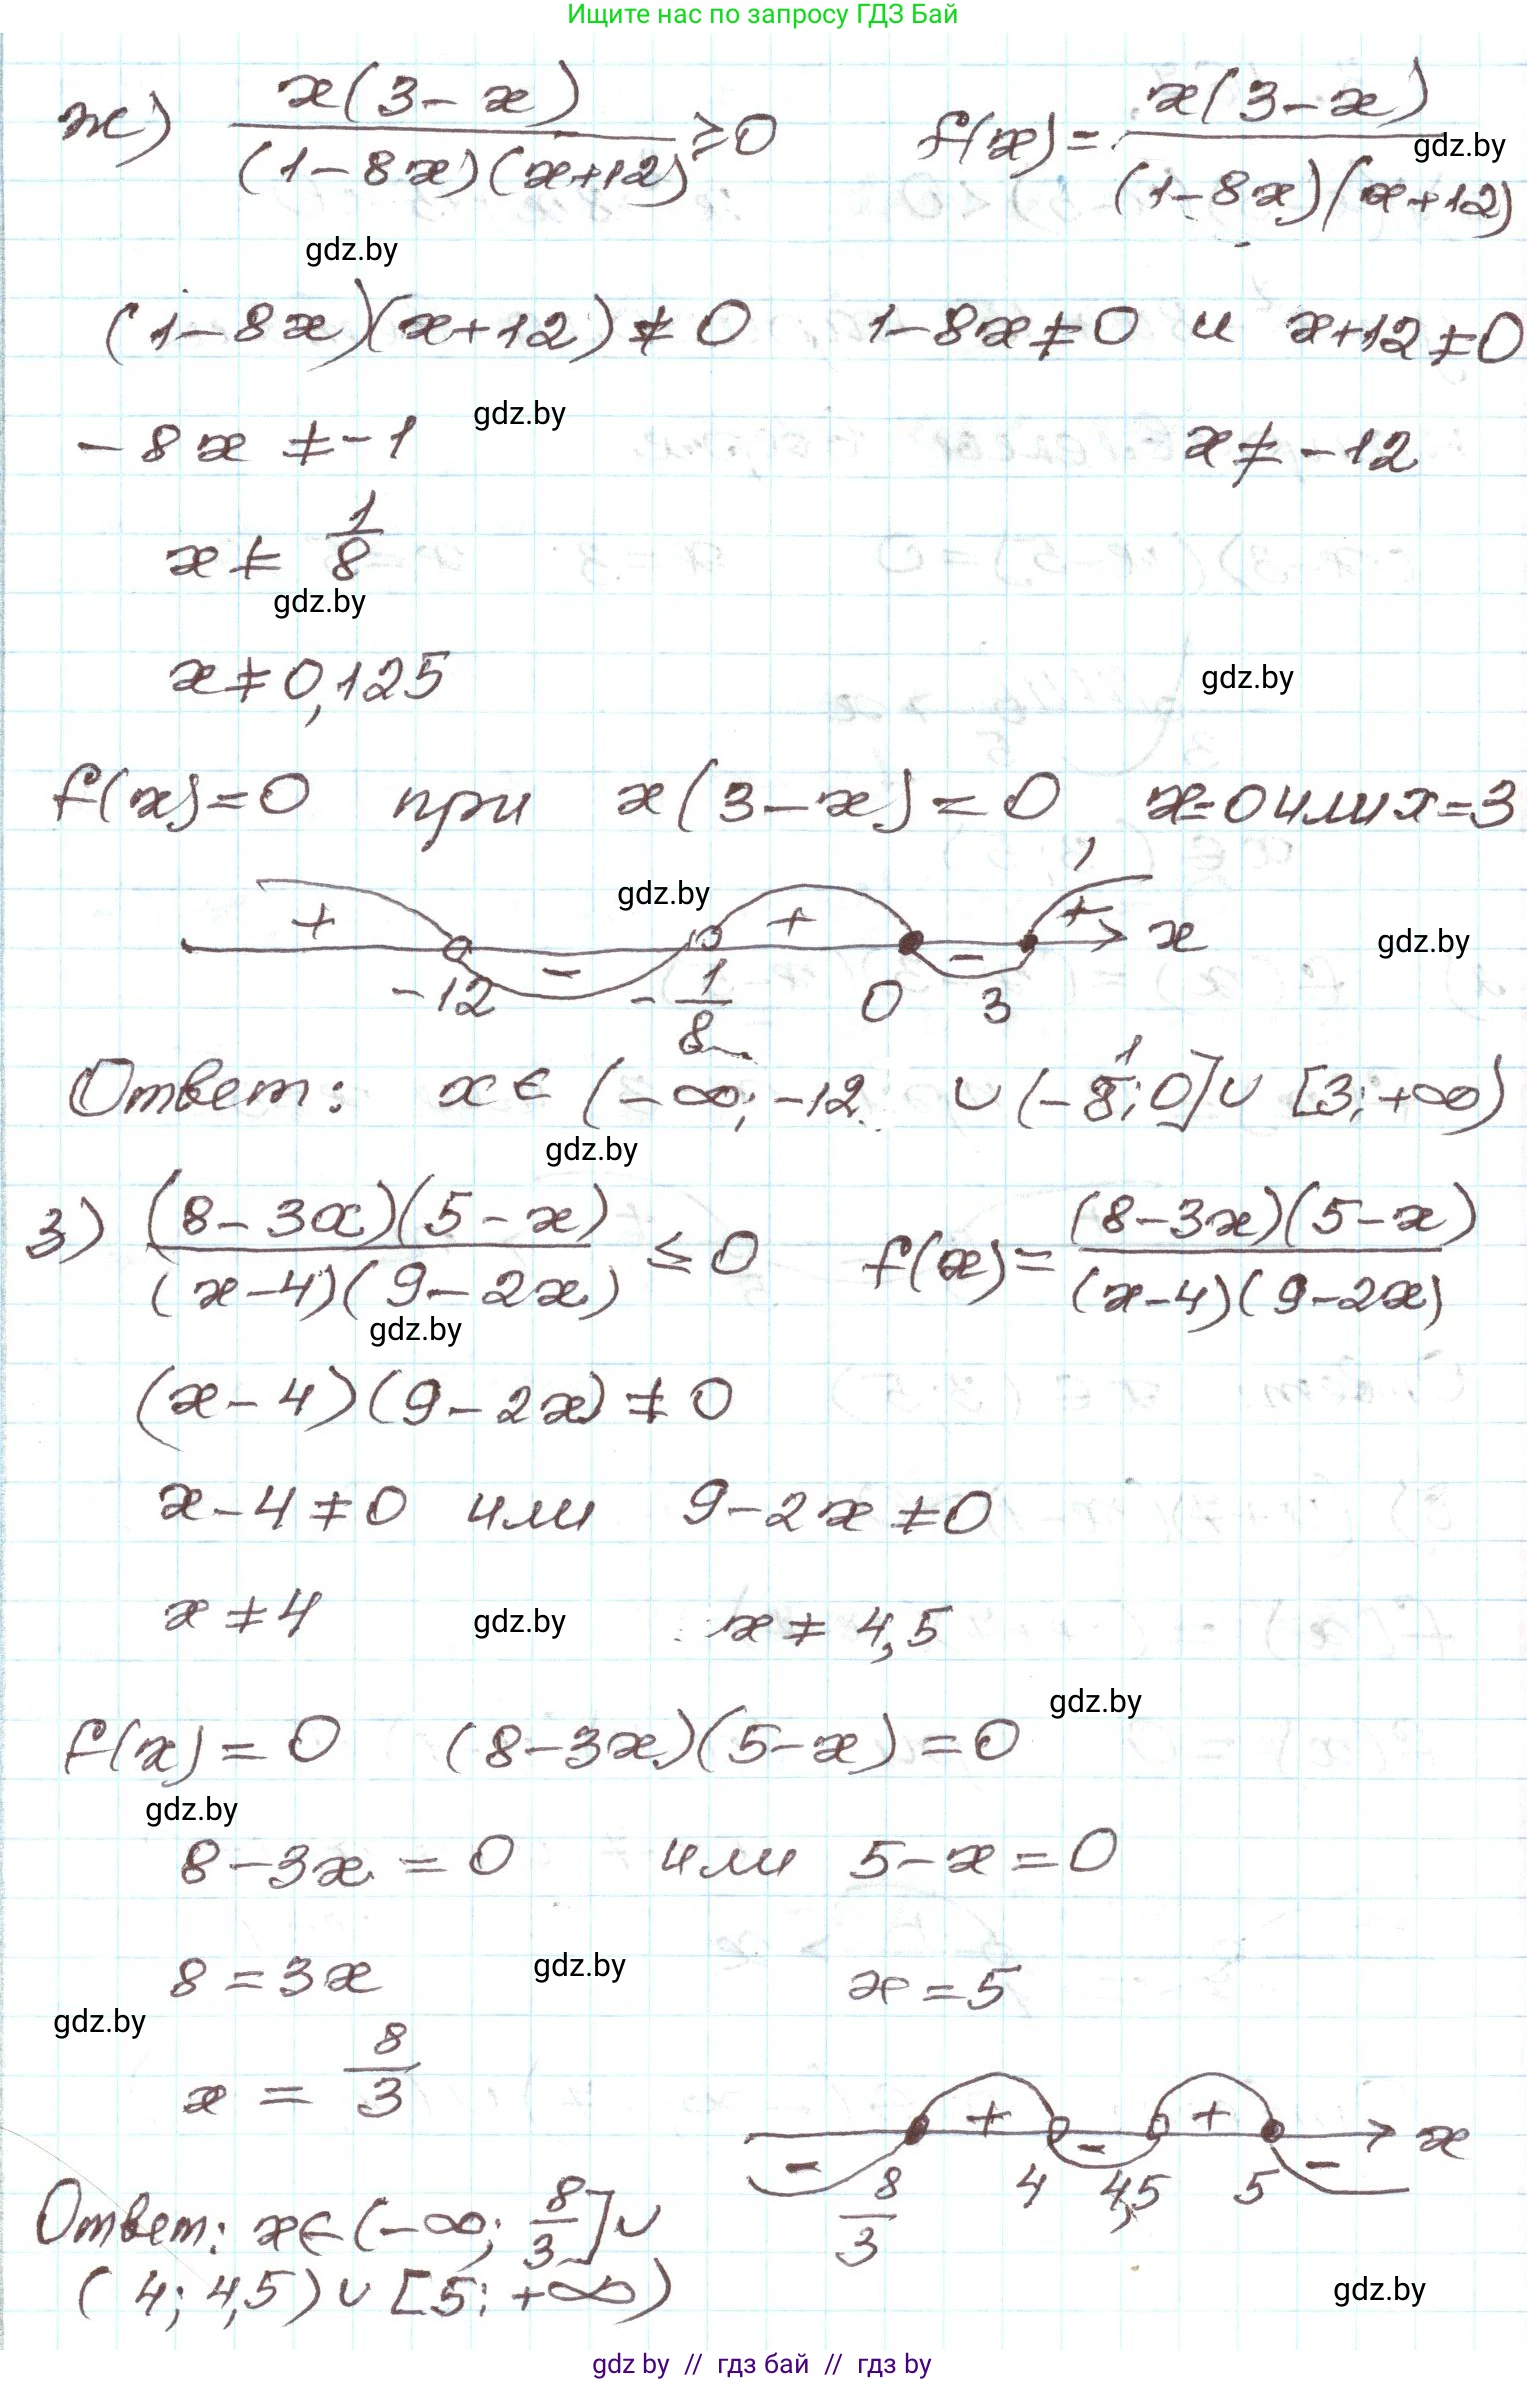 Ищите нас по запросу ГДЗ Бай
ж) x(3-x) / (1-8x)(x+12) ≥ 0   f(x) = x(3-x) / (1-8x)(x+12)
gdz.by
gdz.by
(1-8x)(x+12) ≠ 0   1-8x ≠ 0 и x+12 ≠ 0
-8x ≠ -1   gdz.by   x ≠ -12
x ≠ 1/8
gdz.by
x ≠ 0,125   gdz.by
f(x) = 0 при x(3-x) = 0, x=0 или x=3
gdz.by
+ - + - + x   gdz.by
-12   -1/8   0   3
Ответ: x ∈ (-∞; -12 ∪ (-1/8; 0] ∪ [3; +∞)
gdz.by
з) (8-3x)(5-x) / (x-4)(9-2x) ≤ 0   f(x) = (8-3x)(5-x) / (x-4)(9-2x)
gdz.by
(x-4)(9-2x) ≠ 0
x-4 ≠ 0 или 9-2x ≠ 0
x ≠ 4   gdz.by   x ≠ 4,5
gdz.by
f(x) = 0   (8-3x)(5-x) = 0
gdz.by
8-3x = 0 или 5-x = 0
8 = 3x   gdz.by   x = 5
gdz.by
x = 8/3
- + - + - x
8/3   4   4,5   5
Ответ: x ∈ (-∞; 8/3] ∪
(4; 4,5) ∪ [5; +∞)
gdz.by
gdz by // гдз бай // гдз by